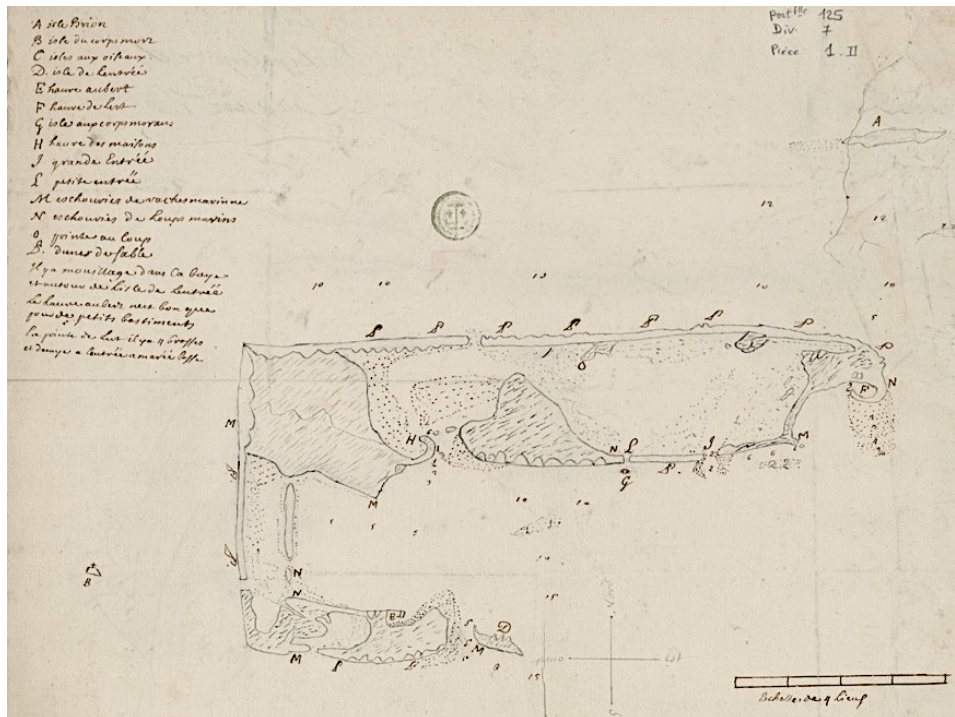 A isle Brion
B isle du corps mort
C isles aux oiseaux
D. isle de Lentrée
E havre aubert
F havre de Lest
G isle aux corps morans
H havre des maisons
J grande Entrée
L petite entrée
M eschouries de vaches marinne
N eschouries de Loups marins
O pointe au loup
P. dunes de sable
Il y a mouillage dans La baye
et autour de Lisle de Lentrée
Le havre aubert nest bon que
pour de petits bastiments
La pointe de Lest il y a 4 brasses
et demye a Lentrée a marée basse
Port lle 125
Div. 7
Pièce 1-II
A
12
12
10
10
10
10
10
P
P
P
P
P
P
P
5
O
F
N
M
H
N
L
J
M
P.
G
M
10
10
5
5
P
P
N
N
B
E
15
D
5
6
M
M
P
15
Nord
Est
Eschelle de 4 Lieus